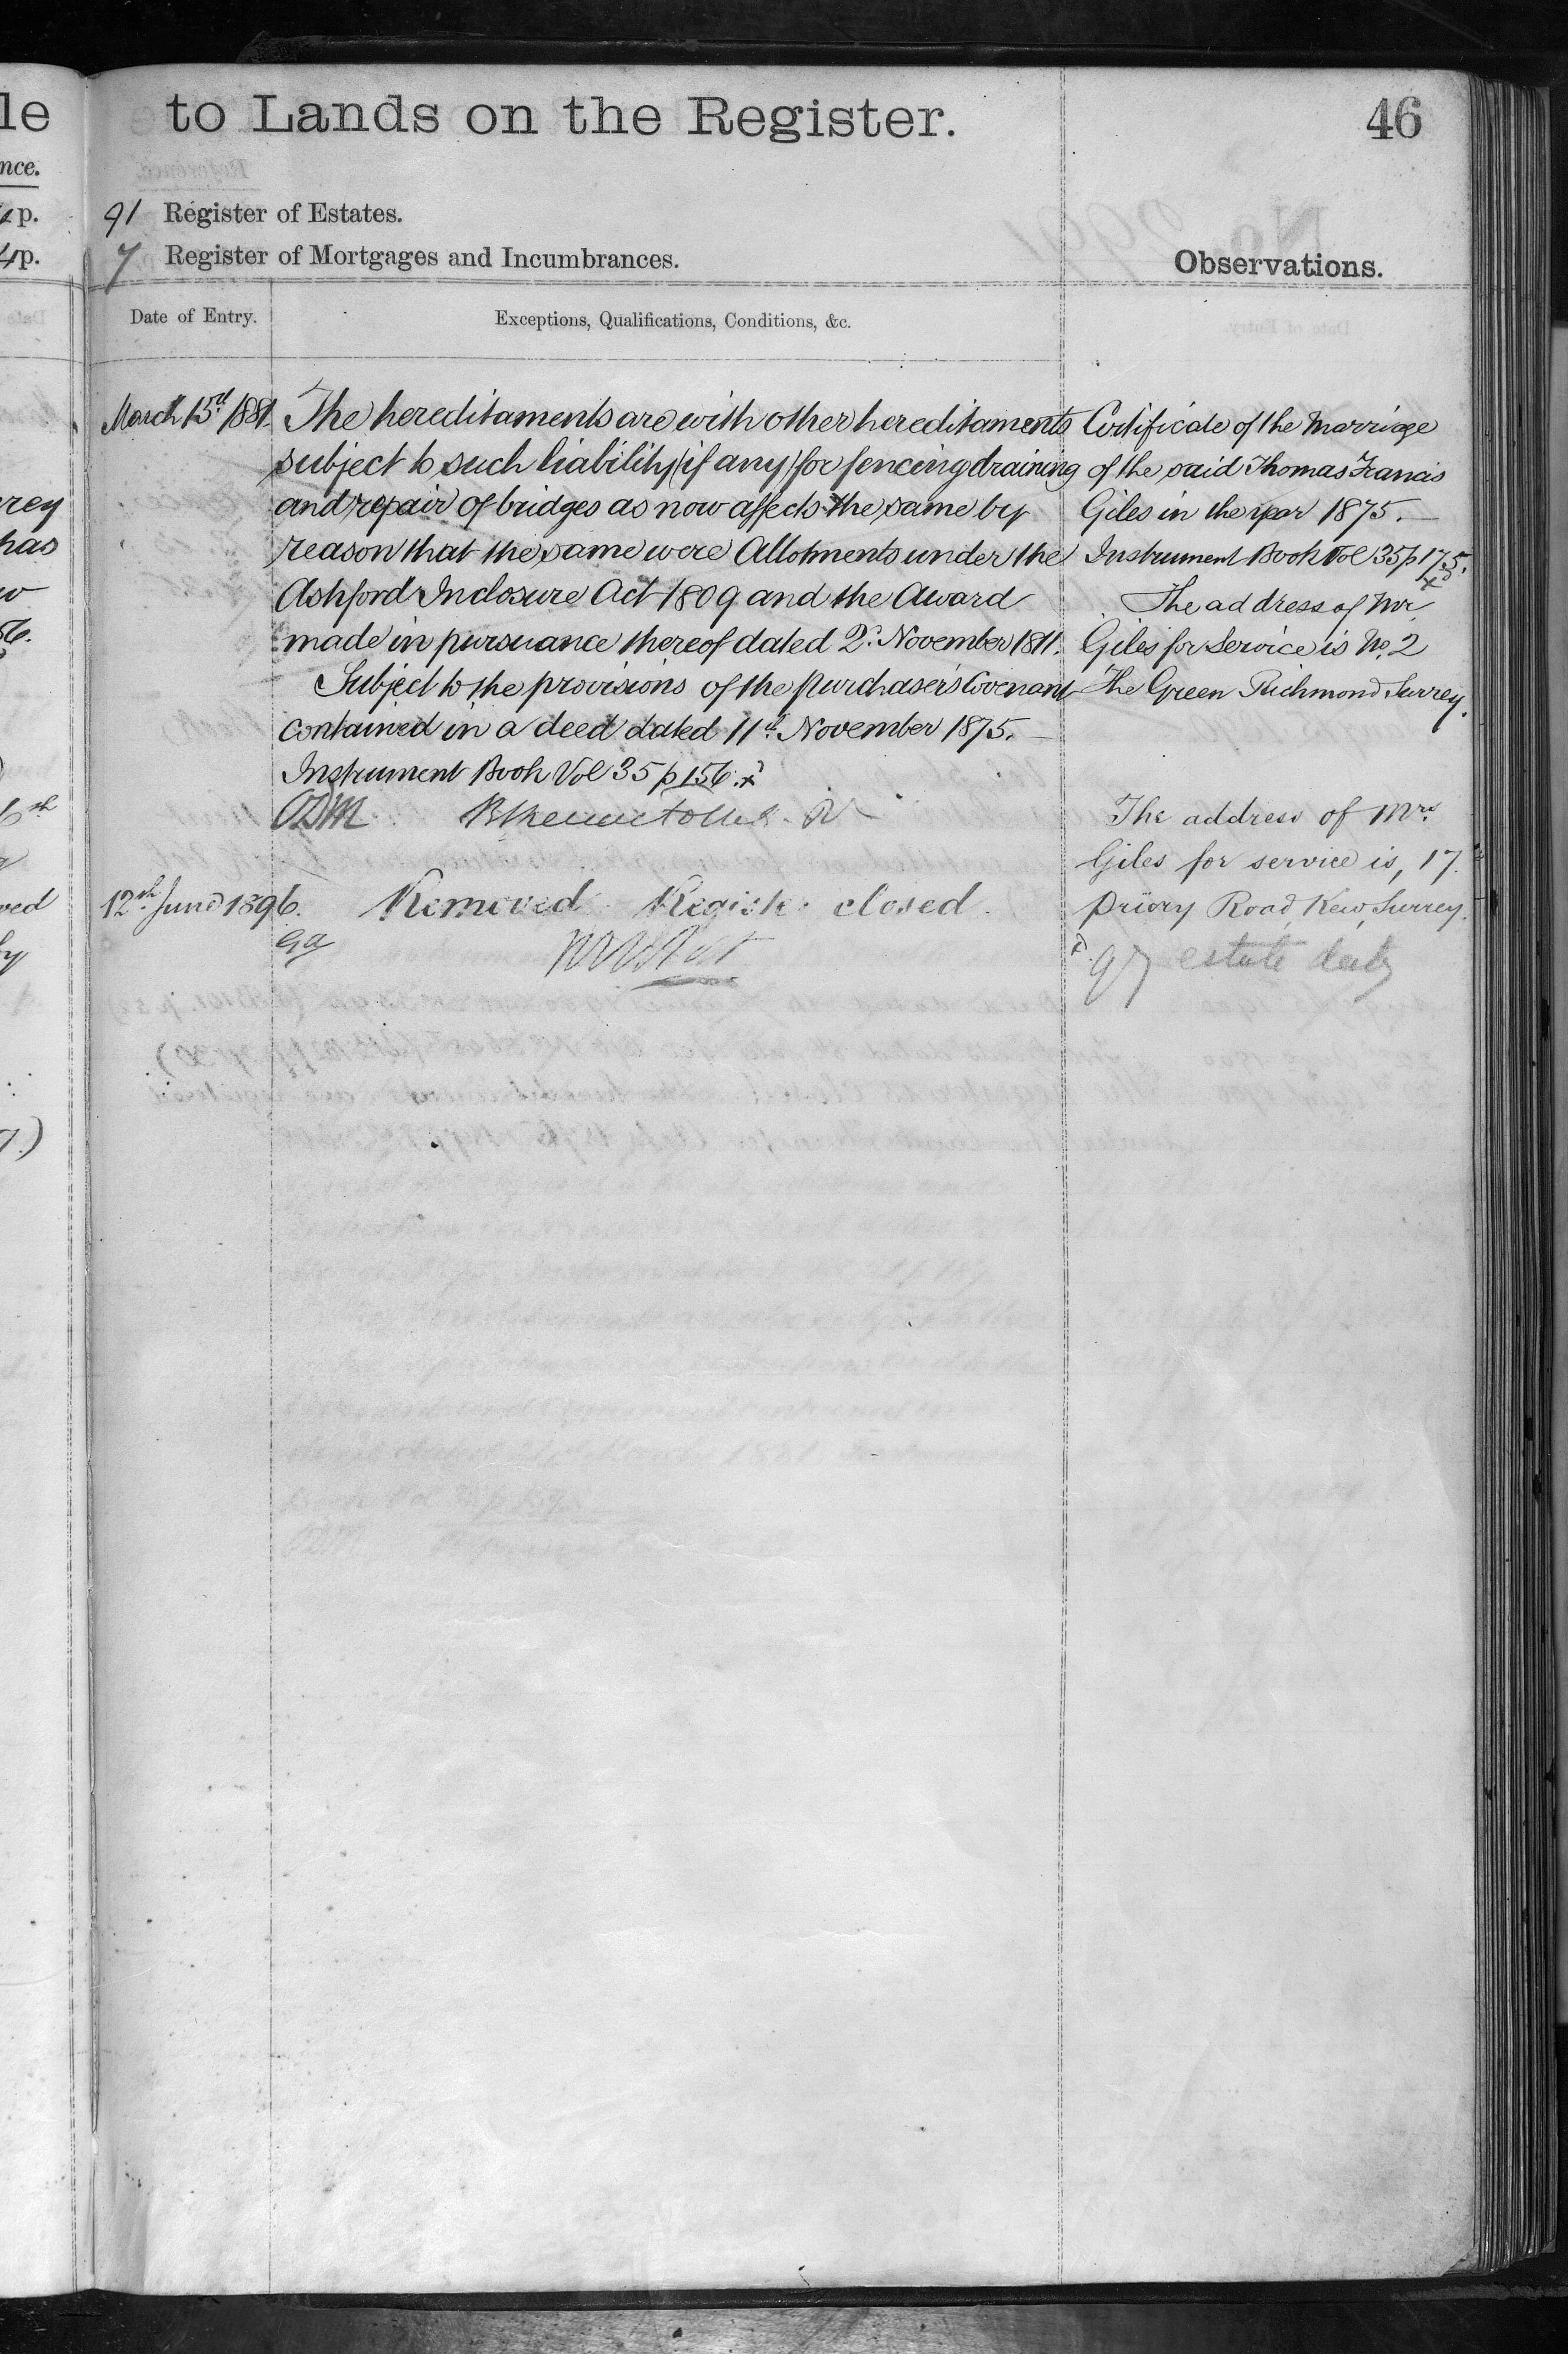 to Lands on the Register.
46
91 Register of Estates.
7 Register of Mortgages and Incumbrances.
Observations.
Date of Entry.
Exceptions, Qualifications, Conditions, &c.
March 15th 1881.
The hereditaments are with other hereditaments
subject to such liability (if any) for fencing draining
and repair of bridges as now affects the same by
reason that the same were Allotments under the
Ashford Inclosure Act 1809 and the Award
made in pursuance thereof dated 2d November 1811.
Subject to the provisions of the purchasers Covenant
contained in a deed dated 11th November 1875.
Instrument Book Vol 35 p 156.
12th June 1896.
Removed Register closed.
Certificate of the Marriage
of the said Thomas Francis
Giles in the year 1875.
Instrument Book Vol 35 p 175.
The address of Mr.
Giles for Service is No. 2
The Green Richmond Surrey.
The address of Mrs.
Giles for service is, 17.
Priory Road, Kew, Surrey.
estate duty